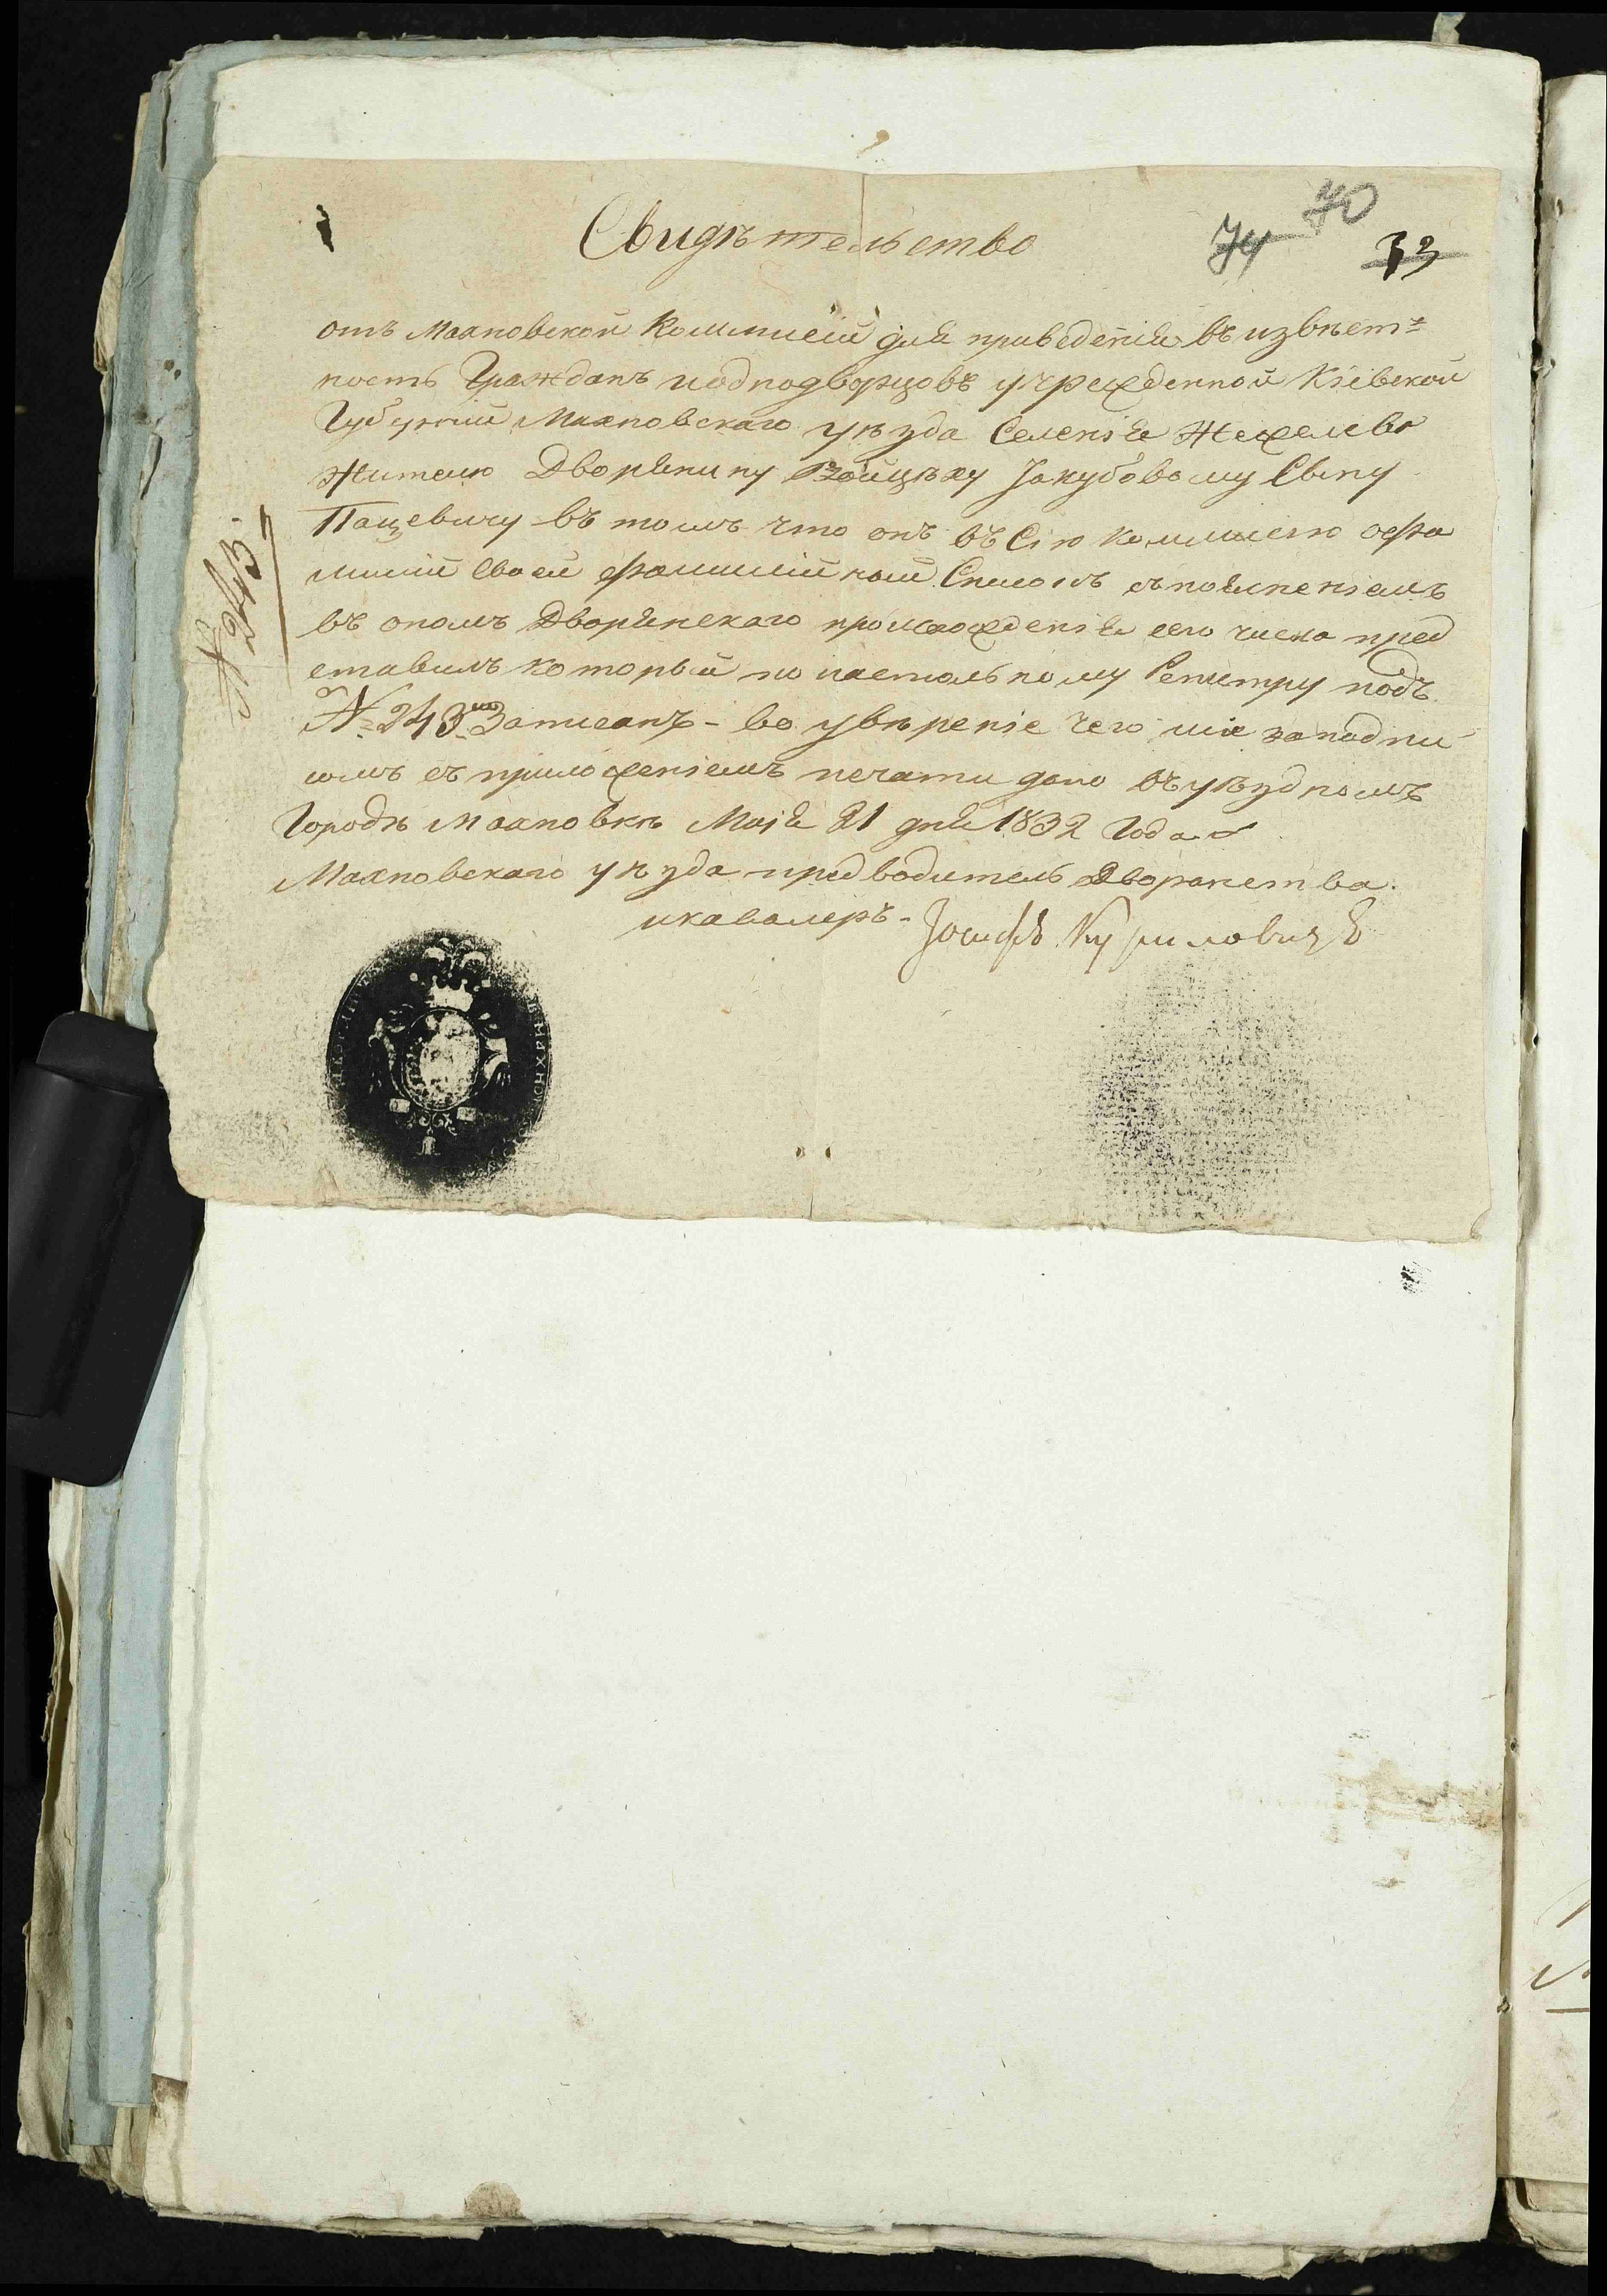 Свидѣтельство
70
74
73
отъ Махновской Коммисіи для приведенія въ извѣст=
ность Гражданъ иоднодворцовъ учрежденной Кіевской
Губерніи Махновскаго уѣзда Селенія Жежелева
Жителю Дворянину Войцѣху Якубовому Сыну
Пацевичу въ томъ что онъ въ Сію Коммисію офа
миліи Своей Фамилійный Списокъ съпоясненіемъ
въ ономъ Дворянскаго происхожденія сего числа пред
ставилъ который по настольному Регистру подъ
№ 243мъ Записанъ - во увѣреніе чего сіе за подпи
сомъ съ приложеніемъ печати дано въ уѣздномъ
Городѣ Махновкѣ Маія 21 дня 1832 Года
Махновскаго уѣзда предводитель Дворянства
икавалеръ - Іосифъ Куриловичъ